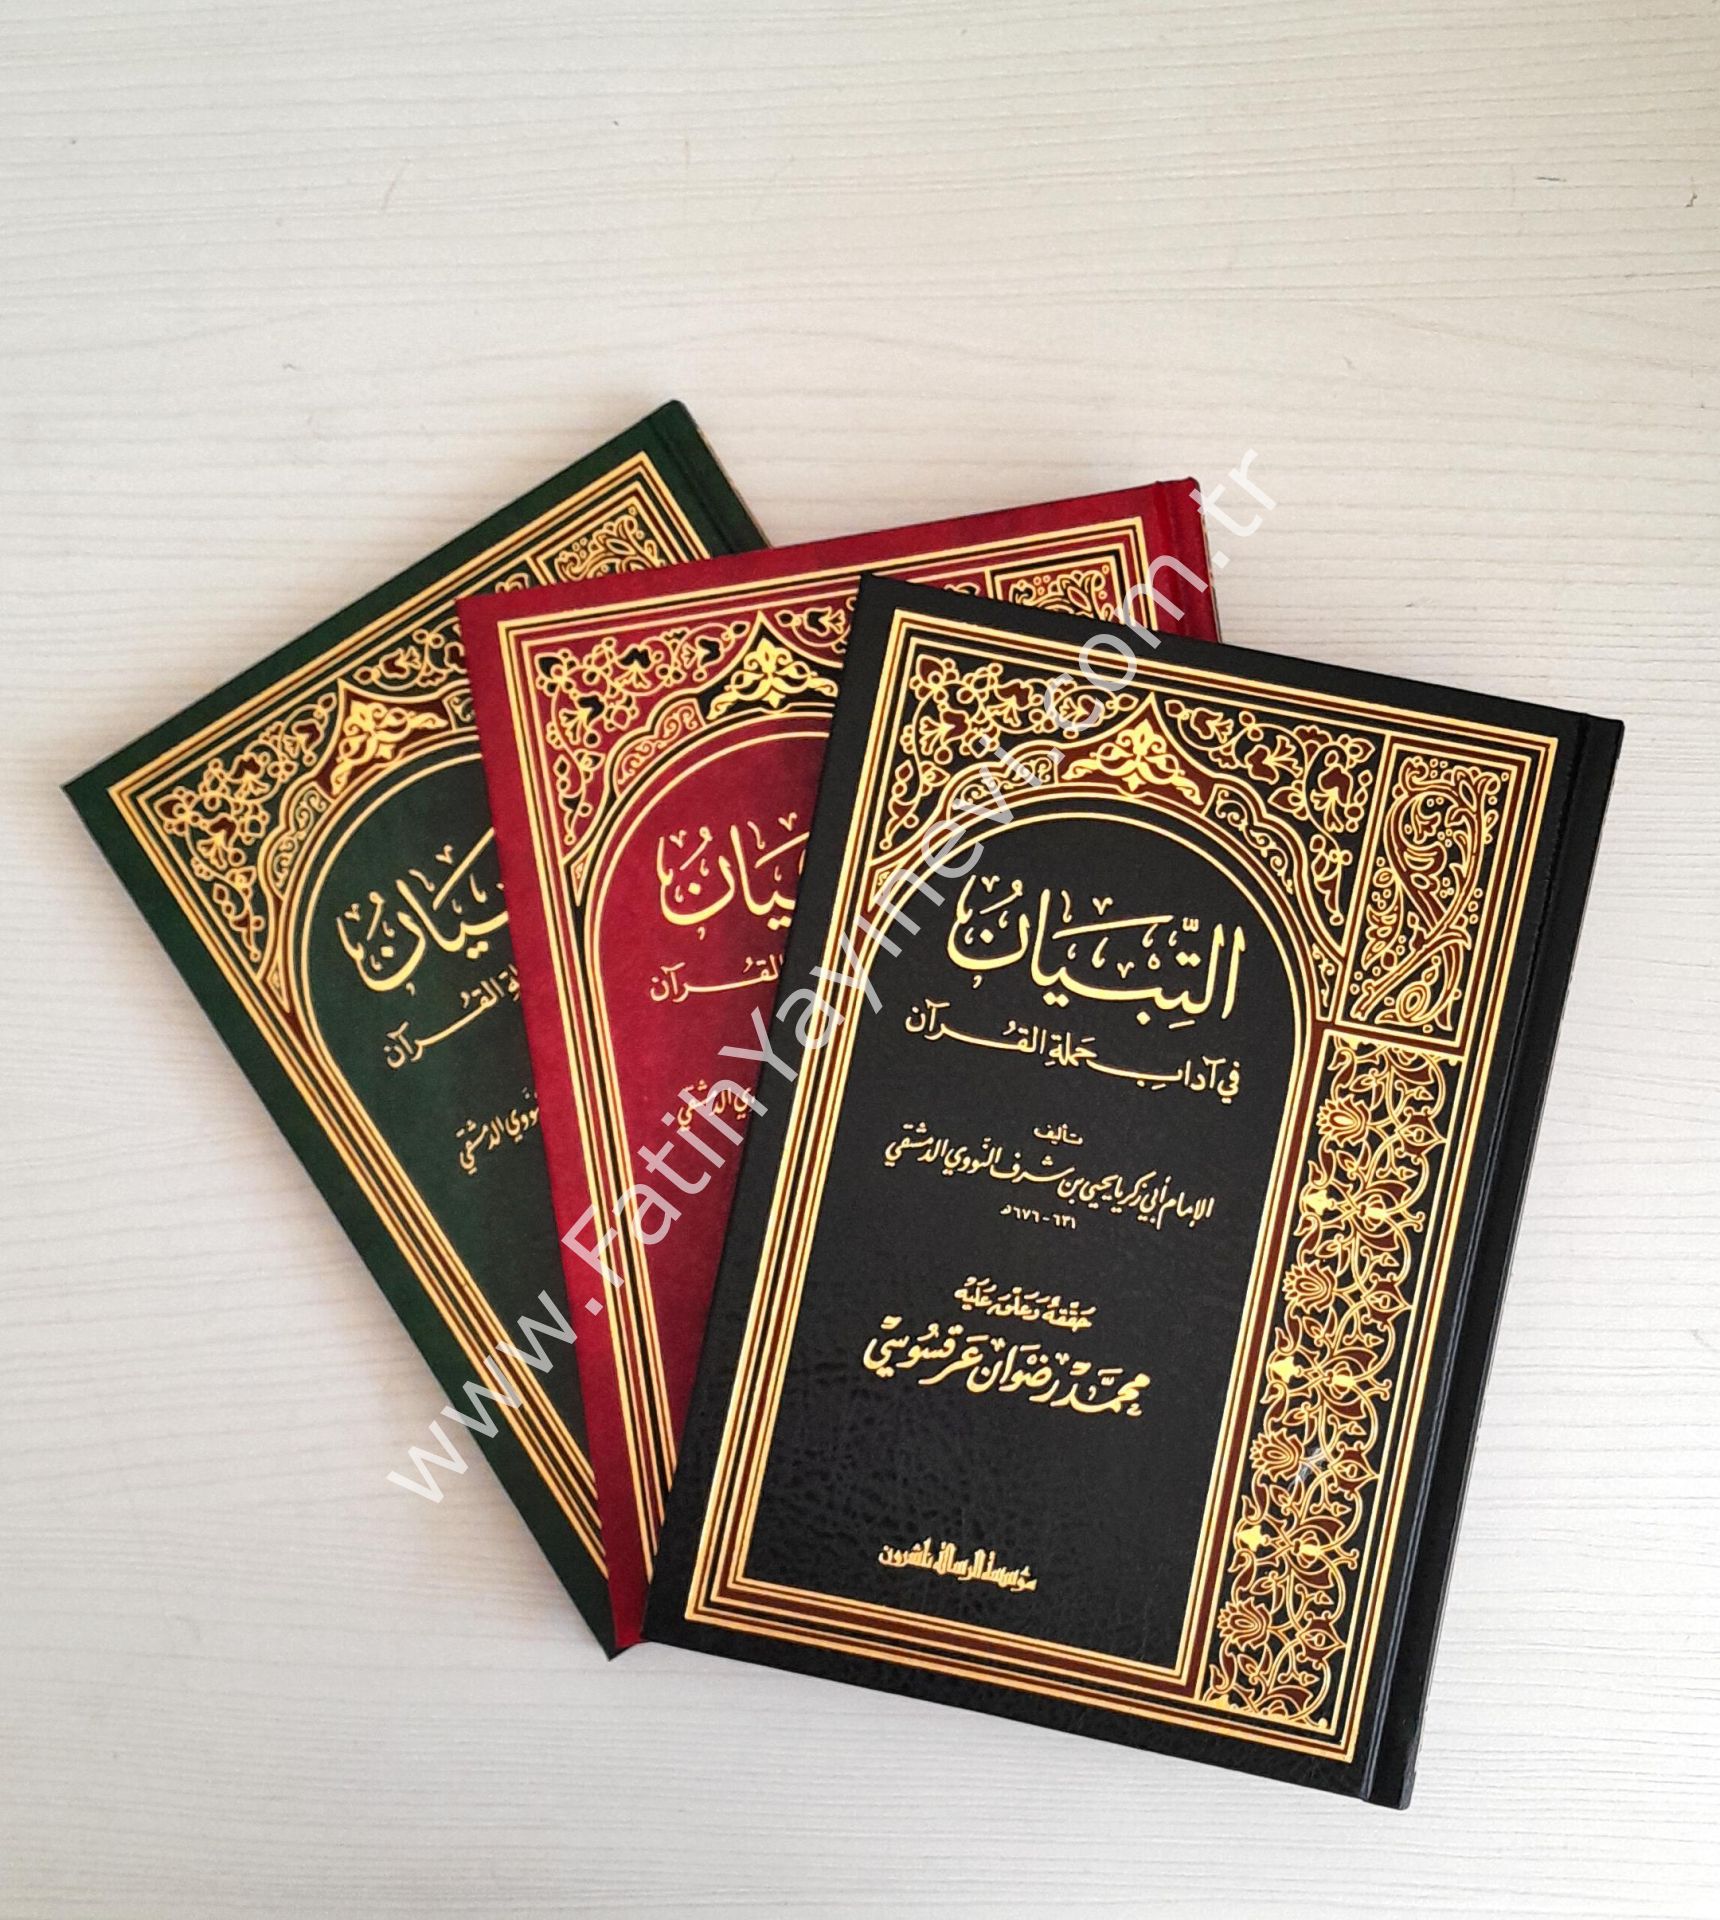 التِّبْيَانُ
في آدابِ حَمَلةِ القُرآن
تأليف
الإمام أبي زكريا يحيى بن شرف النَّووي الدمشقي
٦٣١-٦٧٦ھ
حَقَّقَهُ وَعَلَّقَ عَلَيْهِ
محمَّد رِضْوَان عَرقسُوسِي
مؤسسة الرسالة ناشرون
يَانُ
القُرآن
ي الدمشقي
بيَانُ
لةِ القُرآن
نَّووي الدمشقي
www.FatihYayinevi.com.tr